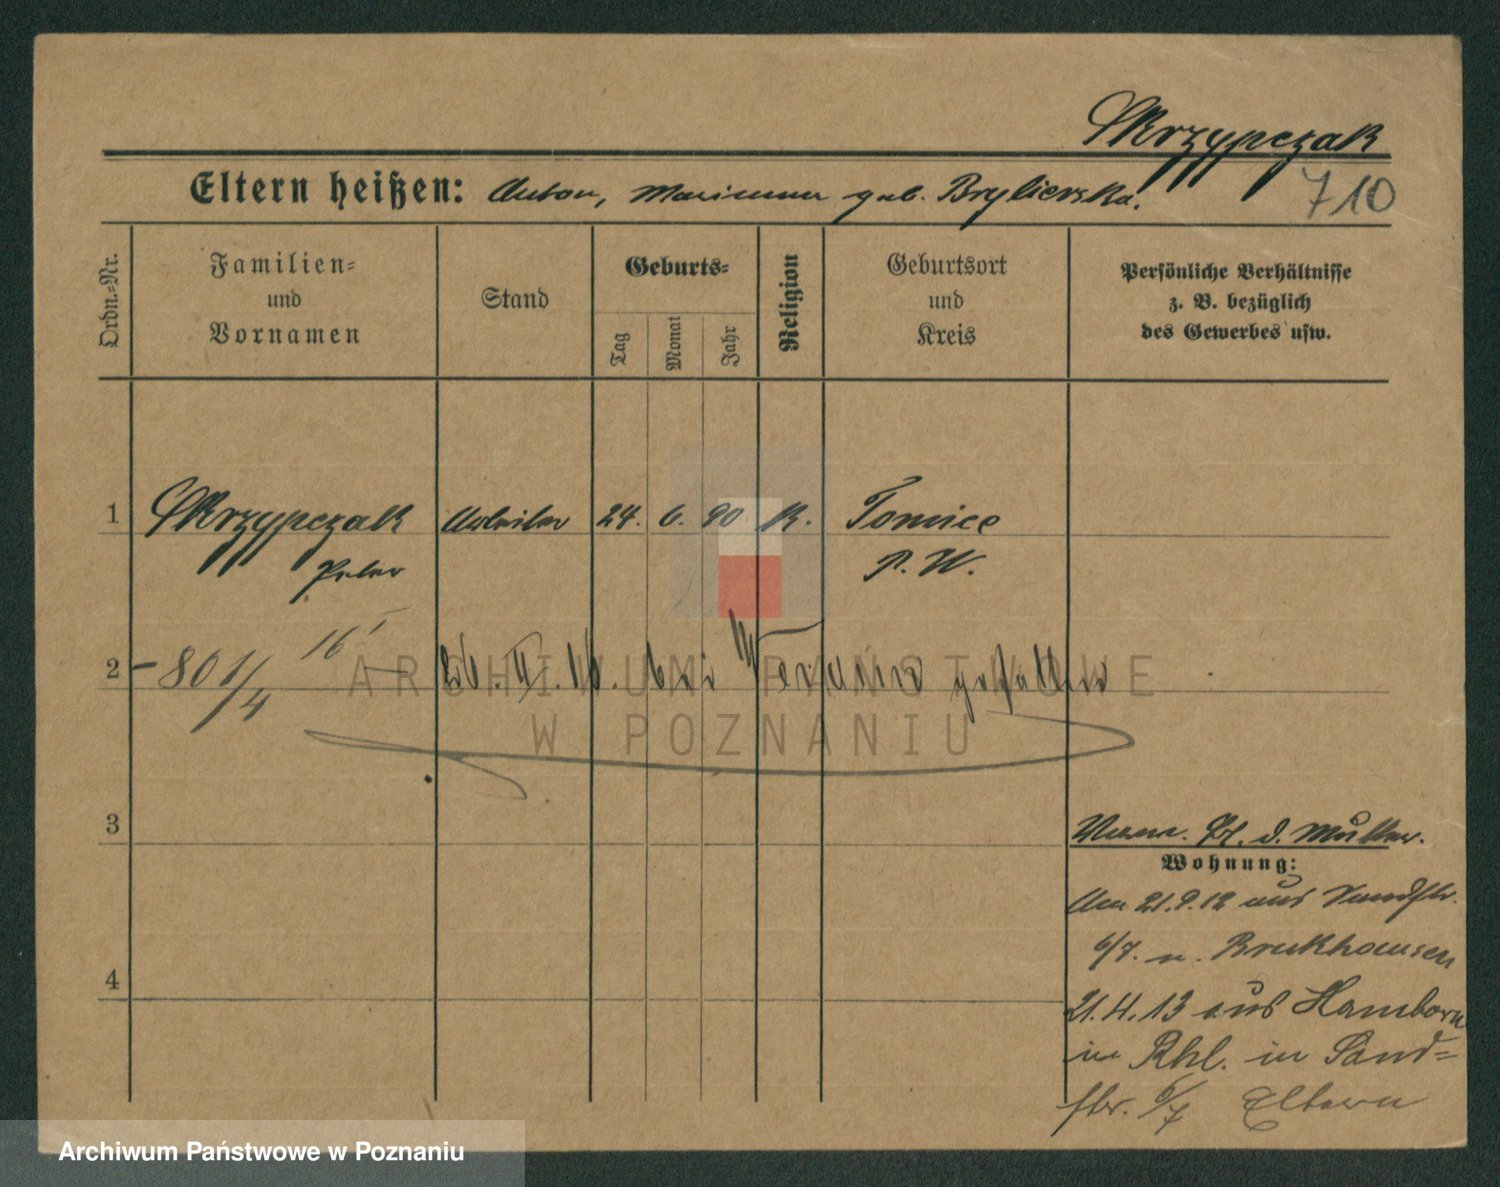 Skrzypczak
Eltern heißen: Anton, Marianna geb. Brylierska.
710
Ordn.-Nr.
Familien-
und
Vornamen
Stand
Geburts-
Tag
Monat
Jahr
Religion
Geburtsort
und
Kreis
Persönliche Verhältnisse
z. B. bezüglich
des Gewerbes usw.
1 Skrzypczak Arbeiter 24. 6. 90 k. Tomice
Peter P. W.
16
2 - 80 1/4 26. II. 16. bei Verdun gefallen
ARCHIWUM PAŃSTWOWE
W POZNANIU
3
d. Mutter.
Wohnung:
Am 21.9.12 aus Sandstr.
6/7. n. Bruckhausen
4
21.4.13 aus Hamborn
in Rhl. in Sand-
str. 6/7 Eltern
Archiwum Państwowe w Poznaniu